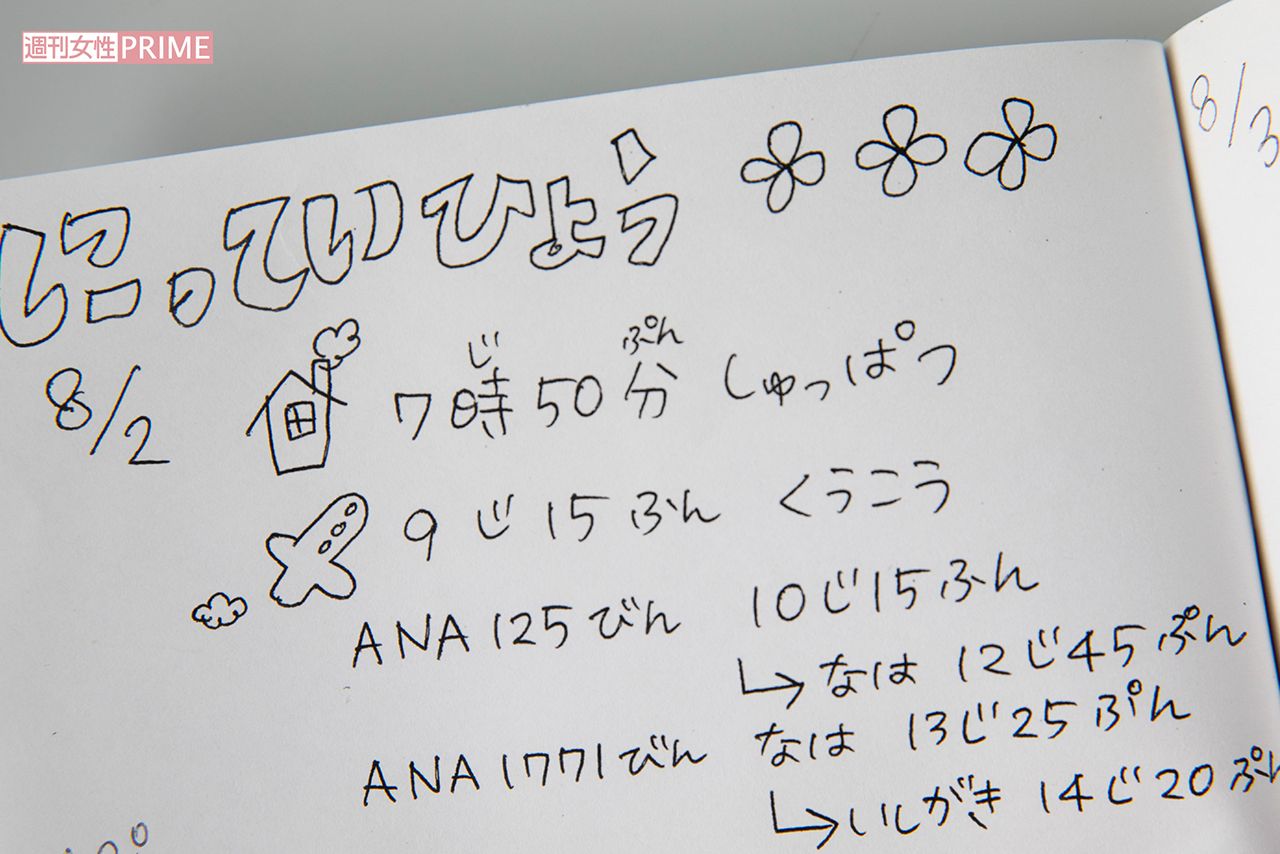 週刊女性PRIME
にっていひょう
8/3
8/2 7時50分 しゅっぱつ
じ ぷん
9じ15ふん くうこう
ANA125びん 10じ15ふん
↳なは 12じ45ぷん
ANA1771びん なは 13じ25ぷん
↳いしがき 14じ20ぷん